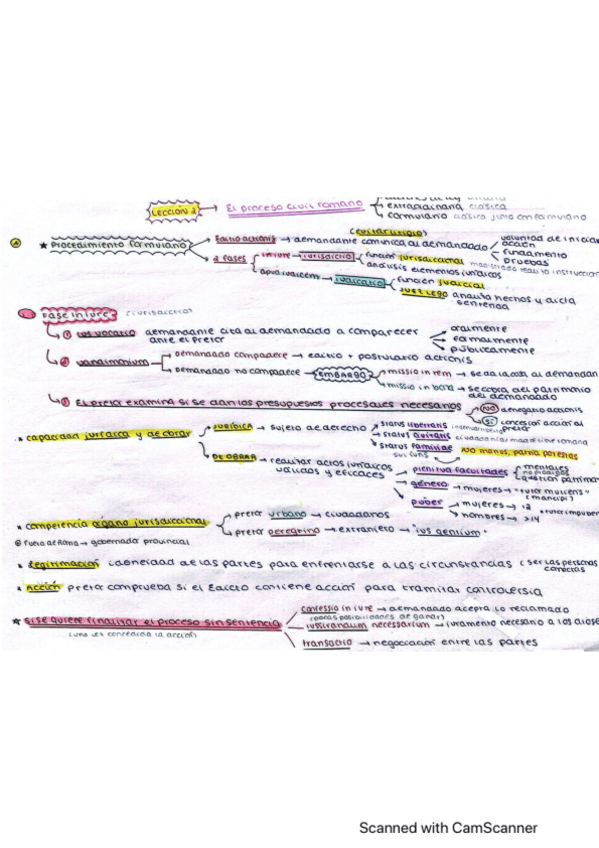 LECCIÓN 2 → El proceso civil romano
→ extraordinaria clásica
→ formulario
★ Procedimiento formulario
→ Editio actionis → demandante comunica al demandado
voluntad de iniciar
acción
fundamento
pruebas
→ 2 fases
in iure → iurisdictio → función jurisdiccional
análisis elementos jurídicos
apud iudicem → iudicatio → función judicial
JUEZ LEGO analiza hechos y dicta sentencia
Fase in iure
→ ius vocatio demandante cita al demandado a comparecer ante el pretor
oralmente
formalmente
públicamente
→ vadimonium
Demandado comparece → editio + postulatio actionis
Demandado no comparece → EMBARGO
missio in rem → se da la cosa al demandan
missio in bona → se cobra del patrimonio del demandado
→ El pretor examina si se dan los presupuestos procesales necesarios
NO denegatio actionis
SÍ concesión acción al pretor
★ capacidad jurídica y de obrar
JURÍDICA → sujeto de derecho
status libertatis
status civitatis ciudadanía romana
status familiae
sui iuris
NO manus, patria potestas
DE OBRAR → realizar actos jurídicos válidos y eficaces
plenitud facultades
mentales
no pródigos
gestión patrimon
género → mujeres → "tutor mulieris"
(mancipi)
púber
mujeres → 12
hombres → >14
"tutor impuber
★ competencia órgano jurisdiccional
pretor urbano → ciudadanos
pretor peregrino → extranjero → "ius gentium"
fuera de Roma → gobernador provincial
★ Legitimación idoneidad de las partes para enfrentarse a las circunstancias (ser las personas correctas
★ Acción pretor comprueba si el Edicto contiene acción para tramitar controversia
★ Si se quiere finalizar el proceso sin sentencia
(una vez concedida la acción)
confessio in iure → demandado acepta lo reclamado
(pocas posibilidades de ganar)
iusiurandum necessarium → juramento necesario a los diose
transactio → negociación entre las partes
Scanned with CamScanner